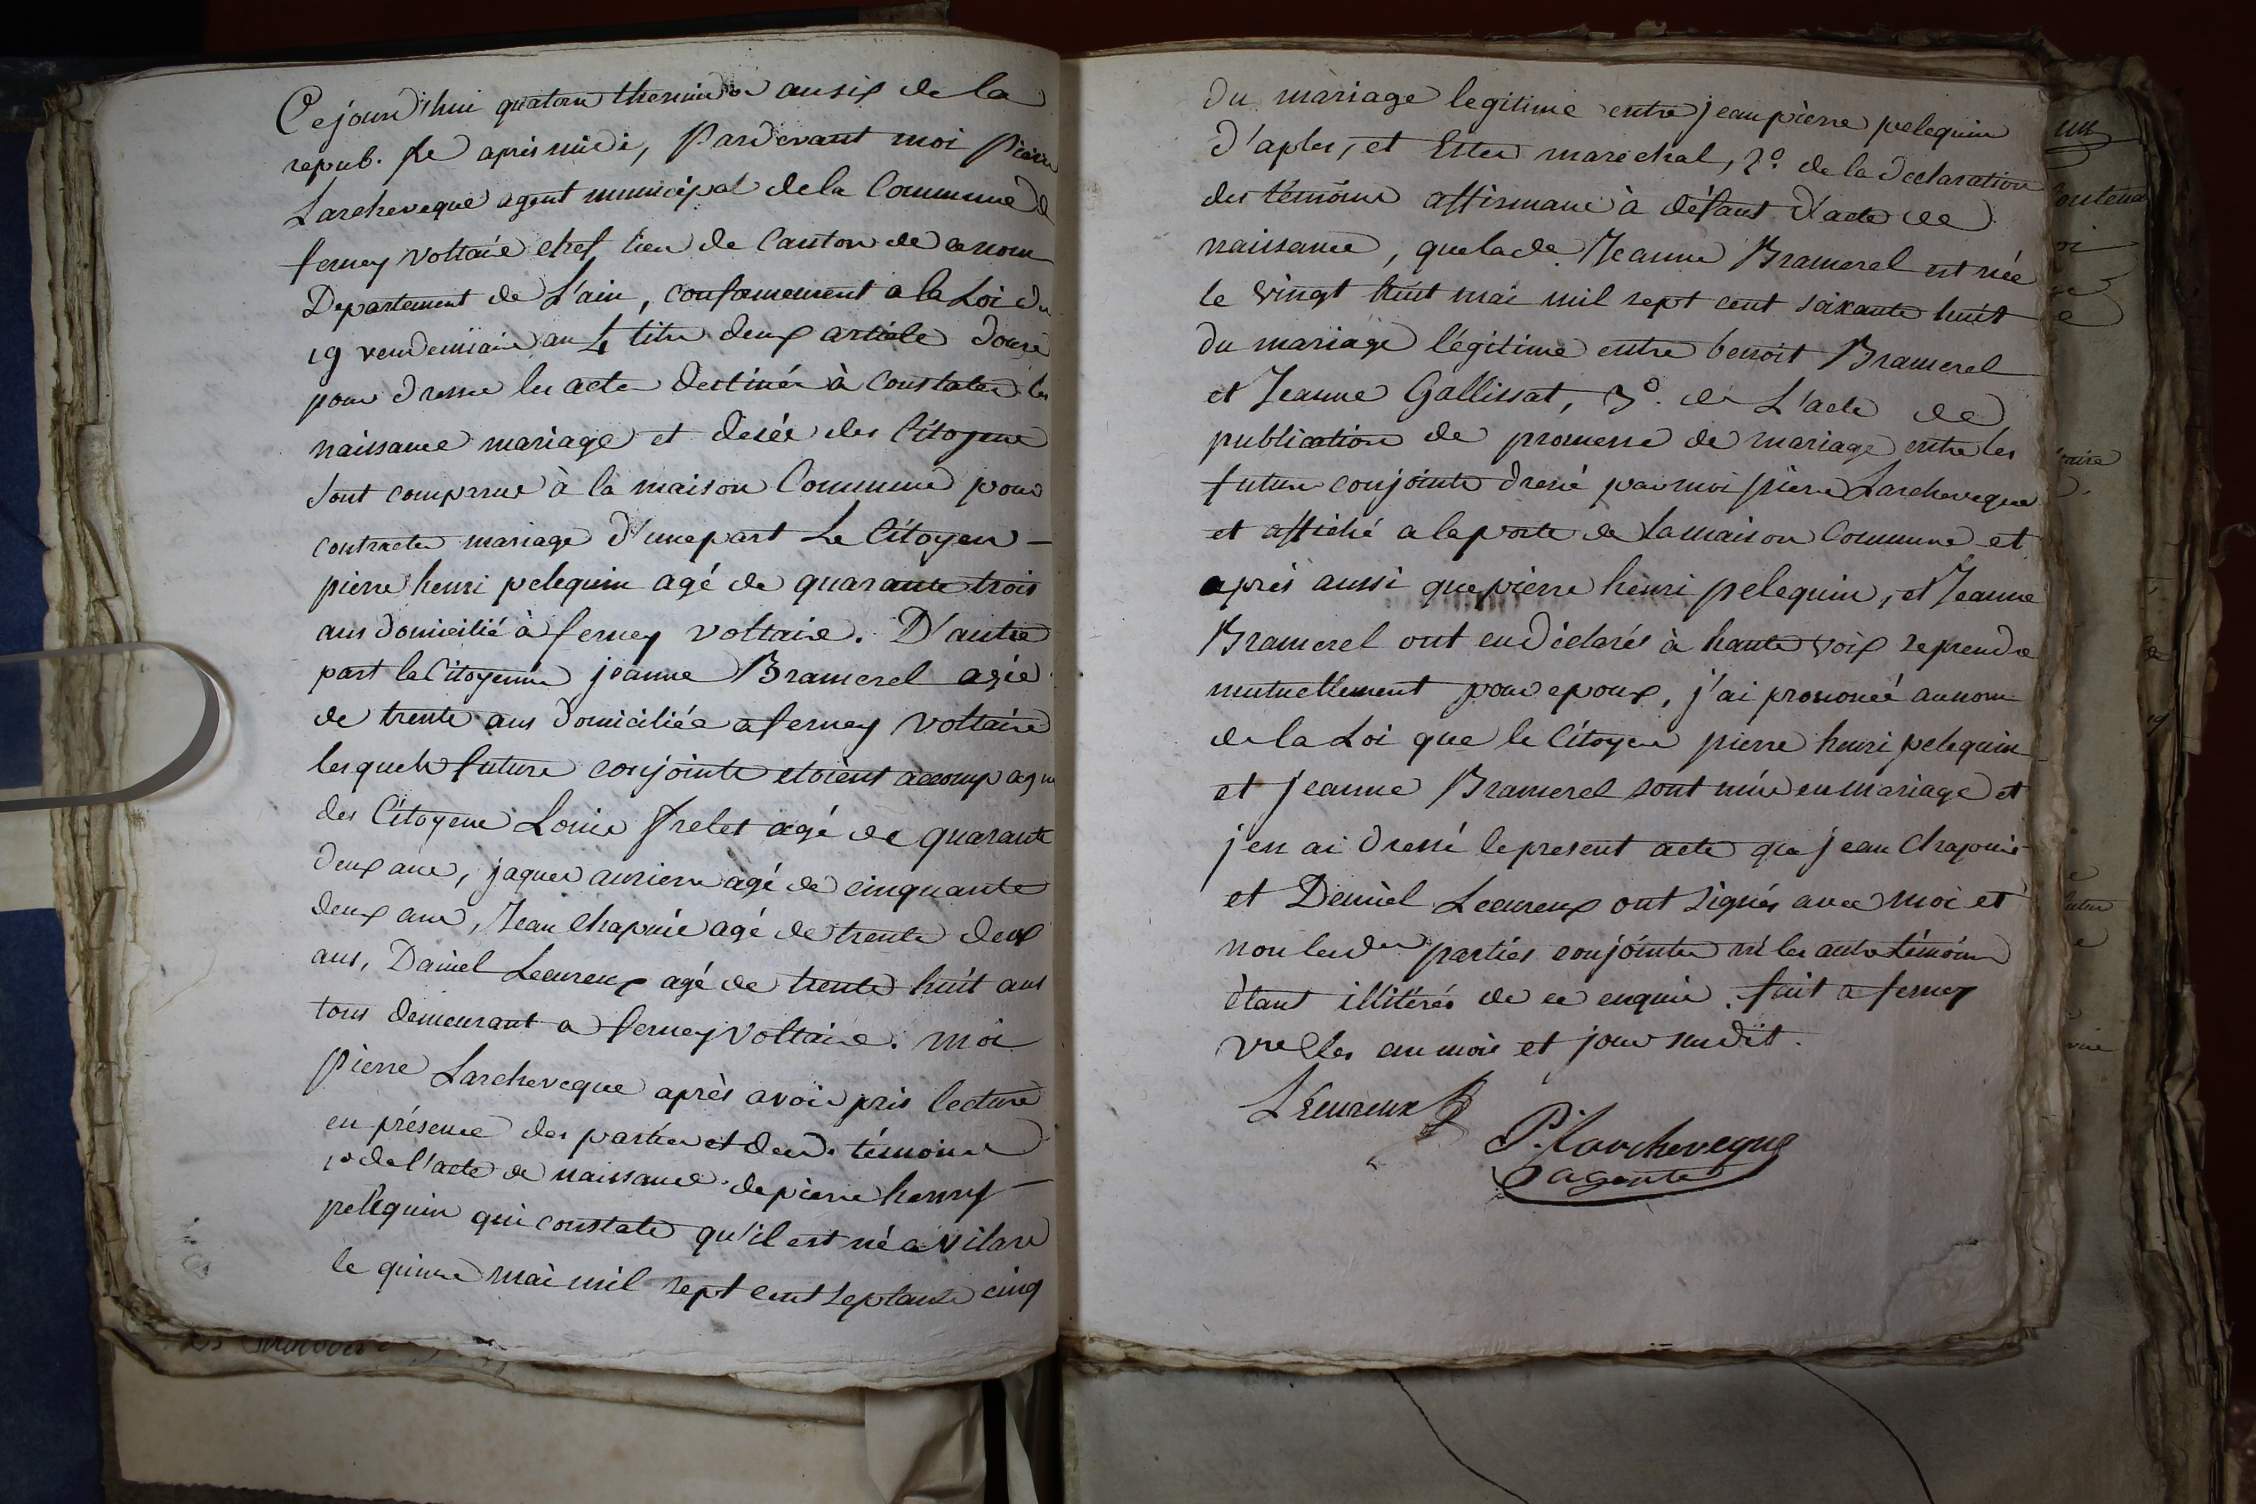 Ce jourd'hui quatorze thermidor an six de la
repub. fse après midi, Pardevant moi Pierre
Larcheveque agent municipal de la Commune de
ferney voltaire chef lieu de Canton de ce nom
Departement de L'ain, conformement a la Loi du
19 vendemiaire an 4 titre deux article douze
pour dresser les actes destinés à Constater les
naissance mariage et decés des Citoyens
sont comparus à la maison Commune pour
contracter mariage d'une part Le Citoyen —
pierre henri pelequin agé de quarante trois
ans domicilié à ferney voltaire. D'autre
part la Citoyenne jeanne Bramerel agée
de trente ans domiciliée a ferney voltaire
lesquels futurs conjoints etoient accompagn
des Citoyens Louis frelet agé de quarante
deux ans, jaques agé de cinquante
deux ans, Jean Chapuis agé de trente deux
ans, Daniel Leeureux agé de trente huit ans
tous demeurant a ferney Voltaire. moi
Pierre Larcheveque après avoir pris lecture
en présence des parties et desd. témoins
1o de l'acte de naissance de pierre henry —
pelequin qui constate qu'il est né a vilars
le quinze mai mil sept cent septante cinq
du mariage legitime entre jean pierre pelequin
d'aples, et Ester marechal, 2o. de la declaration
des témoins affirmant à défaut d'acte de
naissance, que lade. Jeanne Bramerel est née
le vingt huit mai mil sept cent soixante huit
du mariage légitime entre benoit Bramerel
et Jeanne Gallissat, 3o. de L'acte de
publication de promesse de mariage entre les
futurs conjoints dressé par moi pierre Larcheveque
et affiché a la porte de la maison Commune et
après aussi que pierre henri pelequin, et Jeanne
Bramerel ont eu déclarés à haute voix se prendre
mutuellement pour epoux, j'ai prononcé au nom
de la Loi que le Citoyen pierre henri pelequin
et jeanne Bramerel sont unis en mariage et
j'en ai dressé le present acte que jean Chapuis
et Daniel Leeureux ont signés avec moi et
non lesdes parties conjointes ni les autres témoins
étant illitérés de ce enquis. fait a ferney
Vre les an mois et jour susdit.
LEeureux
P. Larcheveque
agente